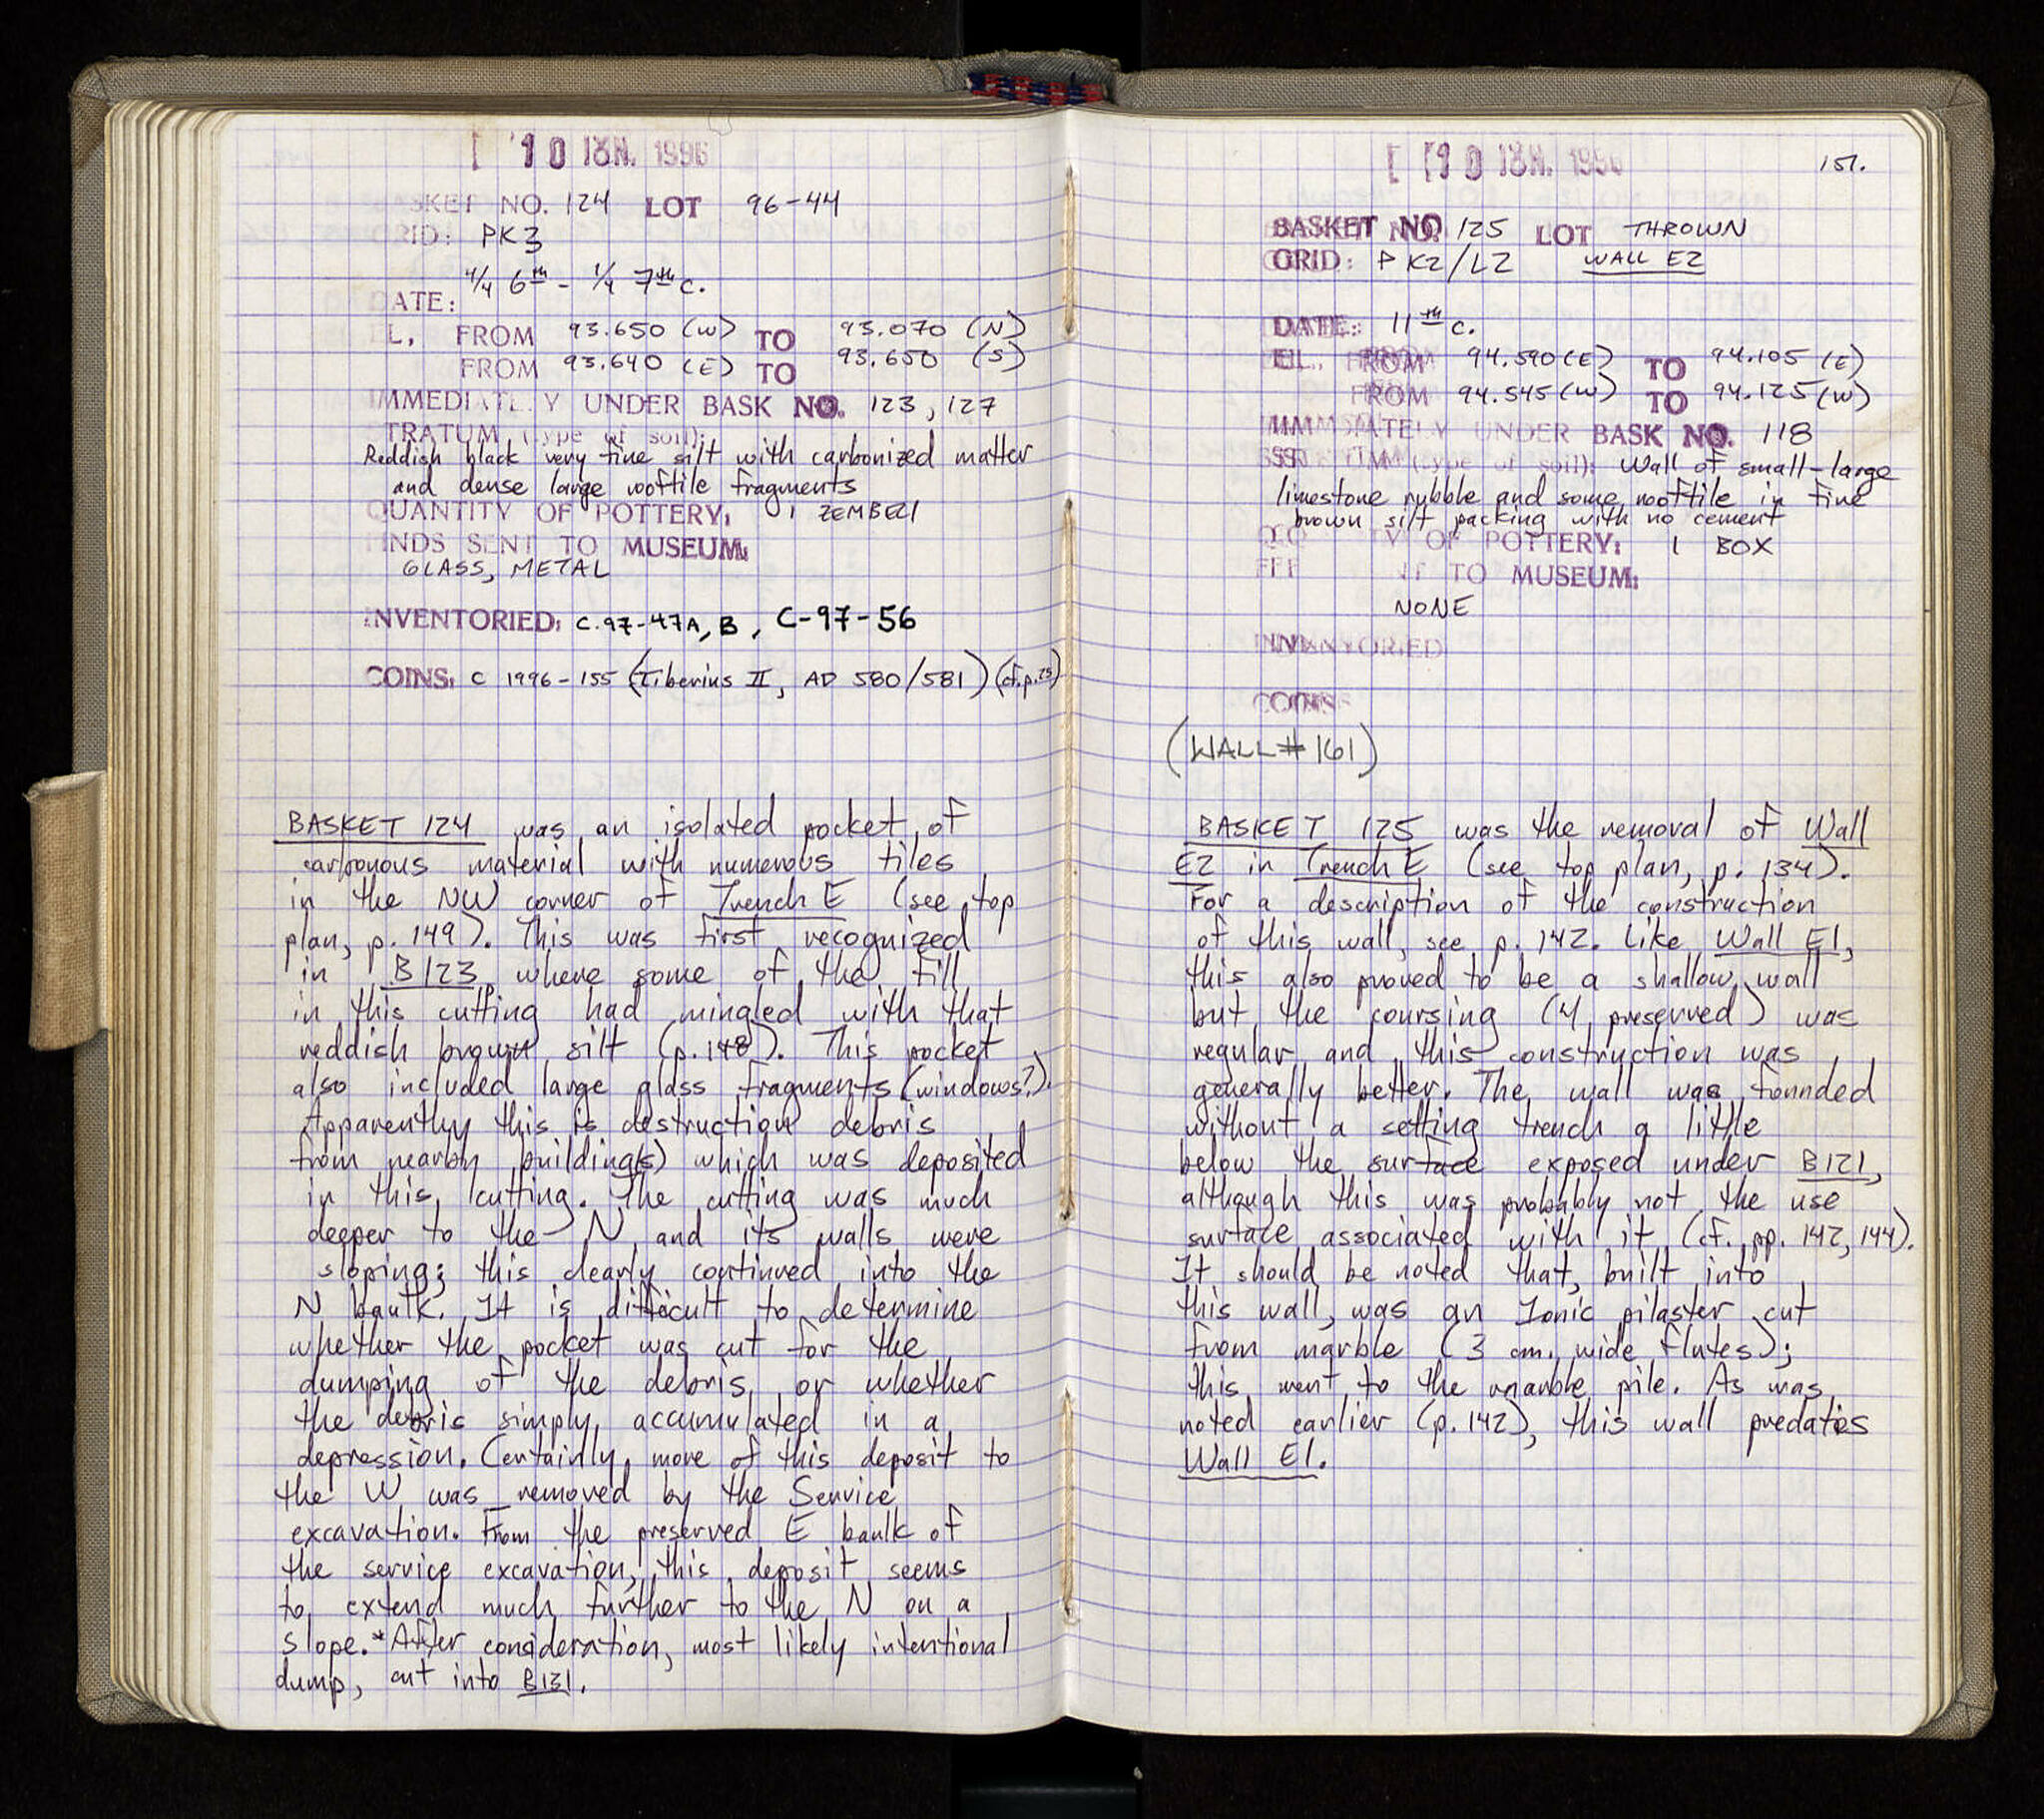 10 JUN. 1996
BASKET NO. 124 LOT 96-44
GRID: PK3
4/4 6th - 1/4 7th c.
DATE:
EL. FROM 93.650 (W) TO 93.070 (N)
FROM 93.640 (E) TO 93.650 (S)
IMMEDIATELY UNDER BASK NO. 123, 127
STRATUM (type of soil):
Reddish black very fine silt with carbonized matter
and dense large rooftile fragments
QUANTITY OF POTTERY: 1 ZEMBELI
FINDS SENT TO MUSEUM:
GLASS, METAL
INVENTORIED: C.97-47A, B, C-97-56
COINS: C 1996-155 (Tiberius II, AD 580/581) (cf. p. 25)
BASKET 124 was an isolated pocket of
carbonous material with numerous tiles
in the NW corner of Trench E (see top
plan, p. 149). This was first recognized
in B123 where some of the fill
in this cutting had mingled with that
reddish brown silt (p. 148). This pocket
also included large glass fragments (windows?).
Apparently this is destruction debris
from nearby building(s) which was deposited
in this cutting. The cutting was much
deeper to the N and its walls were
sloping; this clearly continued into the
N baulk. It is difficult to determine
whether the pocket was cut for the
dumping of the debris, or whether
the debris simply accumulated in a
depression. Certainly, more of this deposit to
the W was removed by the Service
excavation. From the preserved E baulk of
the service excavation, this deposit seems
to extend much further to the N on a
slope. *After consideration, most likely intentional
dump, cut into B131.
10 JUN. 1996
151.
BASKET NO. 125 LOT THROWN
GRID: PK2/L2 WALL E2
DATE: 11th c.
EL. FROM 94.590 (E) TO 94.105 (E)
FROM 94.545 (W) TO 94.125 (W)
IMMEDIATELY UNDER BASK NO. 118
STRATUM (type of soil): Wall of small-large
limestone rubble and some rooftile in fine
brown silt packing with no cement
QUANTITY OF POTTERY: 1 BOX
FINDS SENT TO MUSEUM:
NONE
INVENTORIED
COINS
(WALL # 161)
BASKET 125 was the removal of Wall
E2 in Trench E (see top plan, p. 134).
For a description of the construction
of this wall, see p. 142. Like Wall E1,
this also proved to be a shallow wall
but the coursing (4 preserved) was
regular and this construction was
generally better. The wall was founded
without a setting trench a little
below the surface exposed under B121,
although this was probably not the use
surface associated with it (cf. pp. 142, 144).
It should be noted that, built into
this wall, was an Ionic pilaster cut
from marble (3 cm. wide flutes);
this went to the marble pile. As was
noted earlier (p. 142), this wall predates
Wall E1.